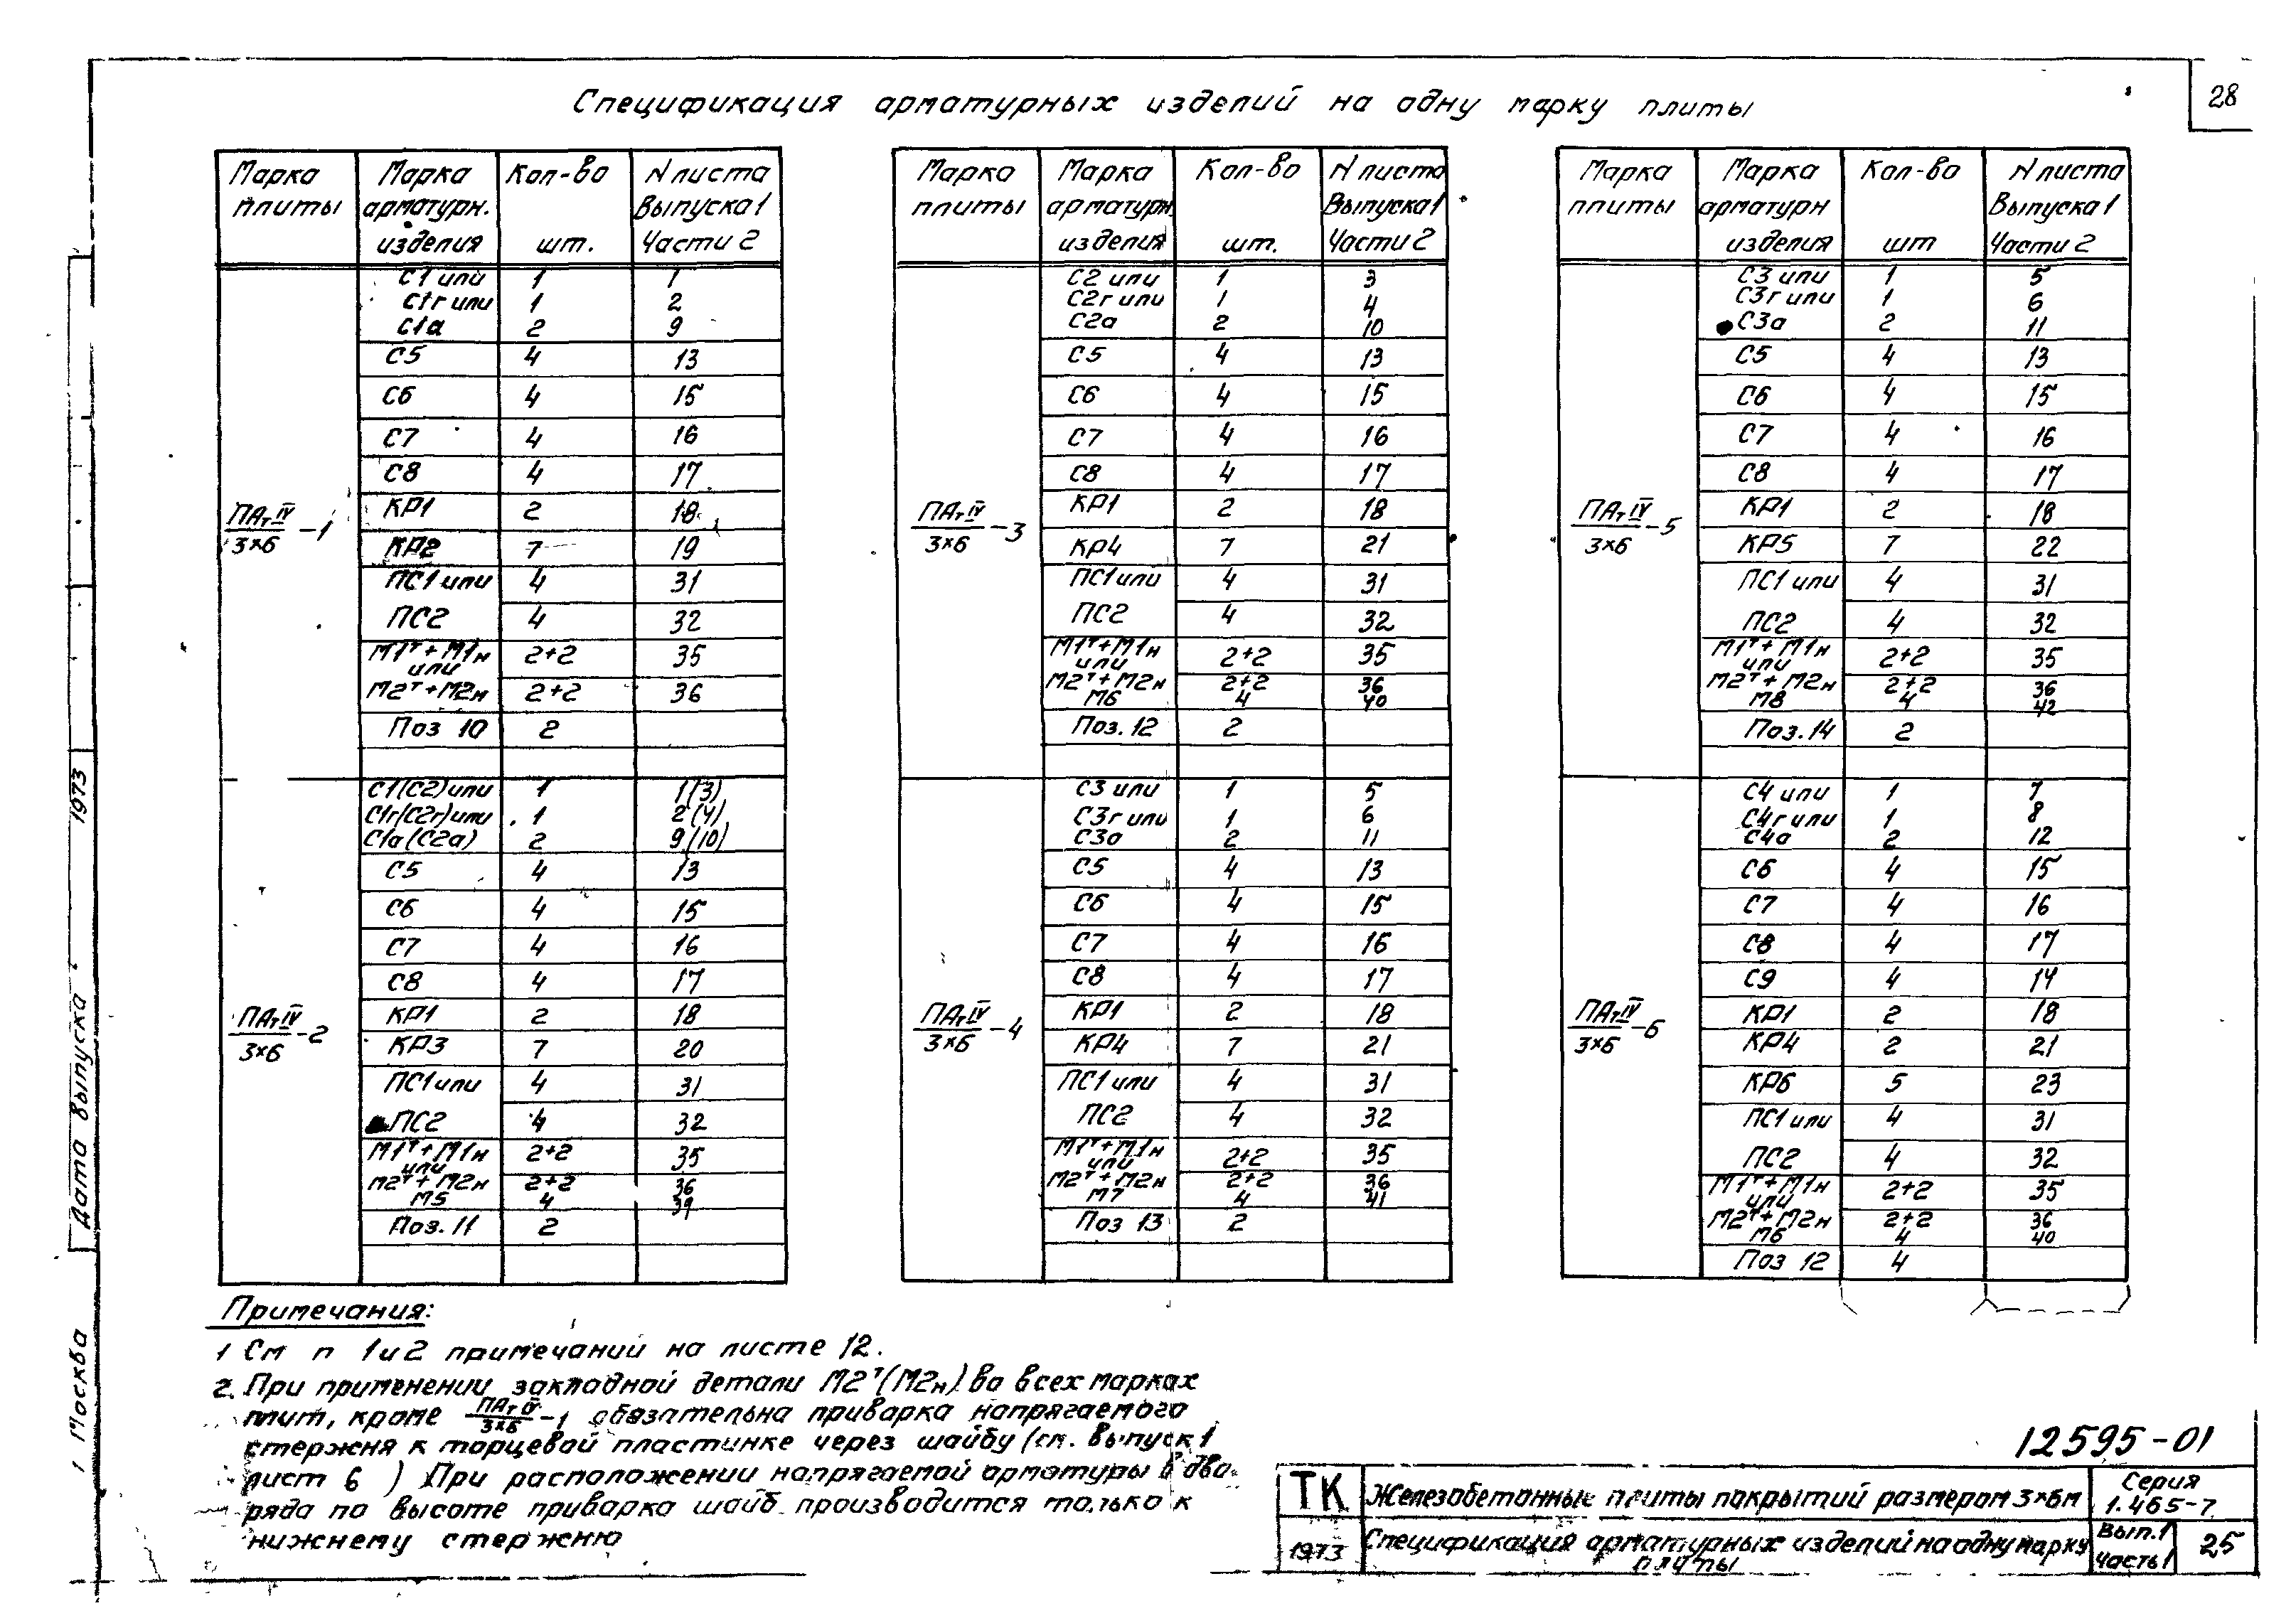 28
Спецификация арматурных изделий на одну марку плиты
Марка плиты | Марка арматурн. изделия | Кол-во шт. | N листа Выпуска 1 Части 2
ПАтIV/3×6 -1
С1 или 1 1
С1г или 1 2
С1а 2 9
С5 4 13
С6 4 15
С7 4 16
С8 4 17
КР1 2 18
КР2 7 19
ПС1 или 4 31
ПС2 4 32
М1т+М1н или 2+2 35
М2т+М2н 2+2 36
Поз 10 2
ПАтIV/3×6 -2
С1(С2) или 1 1(3)
С1г(С2г) или 1 2(4)
С1а(С2а) 2 9(10)
С5 4 13
С6 4 15
С7 4 16
С8 4 17
КР1 2 18
КР3 7 20
ПС1 или 4 31
ПС2 4 32
М1т+М1н или 2+2 35
М2т+М2н 2+2 36
М5 4 39
Поз. 11 2
Марка плиты | Марка арматурн изделия | Кол-во шт. | N листа Выпуска 1 Части 2
ПАтIV/3×6 -3
С2 или 1 3
С2г или 1 4
С2а 2 10
С5 4 13
С6 4 15
С7 4 16
С8 4 17
КР1 2 18
КР4 7 21
ПС1 или 4 31
ПС2 4 32
М1т+М1н или 2+2 35
М2т+М2н 2+2 36
М6 4 40
Поз. 12 2
ПАтIV/3×6 -4
С3 или 1 5
С3г или 1 6
С3а 2 11
С5 4 13
С6 4 15
С7 4 16
С8 4 17
КР1 2 18
КР4 7 21
ПС1 или 4 31
ПС2 4 32
М1т+М1н или 2+2 35
М2т+М2н 2+2 36
М7 4 41
Поз 13 2
Марка плиты | Марка арматурн изделия | Кол-во шт | N листа Выпуска 1 Части 2
ПАтIV/3×6 -5
С3 или 1 5
С3г или 1 6
С3а 2 11
С5 4 13
С6 4 15
С7 4 16
С8 4 17
КР1 2 18
КР5 7 22
ПС1 или 4 31
ПС2 4 32
М1т+М1н или 2+2 35
М2т+М2н 2+2 36
М8 4 42
Поз. 14 2
ПАтIV/3×6 -6
С4 или 1 7
С4г или 1 8
С4а 2 12
С6 4 15
С7 4 16
С8 4 17
С9 4 14
КР1 2 18
КР4 2 21
КР6 5 23
ПС1 или 4 31
ПС2 4 32
М1т+М1н или 2+2 35
М2т+М2н 2+2 36
М6 4 40
Поз 12 4
Примечания:
1 См п 1 и 2 примечаний на листе 12.
2. При применении закладной детали М2т(М2н) во всех марках
плит, кроме ПАтIV/3×6 -1 обязательна приварка напрягаемого
стержня к торцевой пластинке через шайбу (см. Выпуск 1
лист 6 ) При расположении напрягаемой арматуры в два
ряда по высоте приварка шайб производится только к
нижнему стержню
12595-01
ТК Железобетонные плиты покрытий размером 3×6м Серия 1.465-7
1973 Спецификация арматурных изделий на одну марку плиты Вып.1 часть 1 25
г Москва Дата выпуска 1973